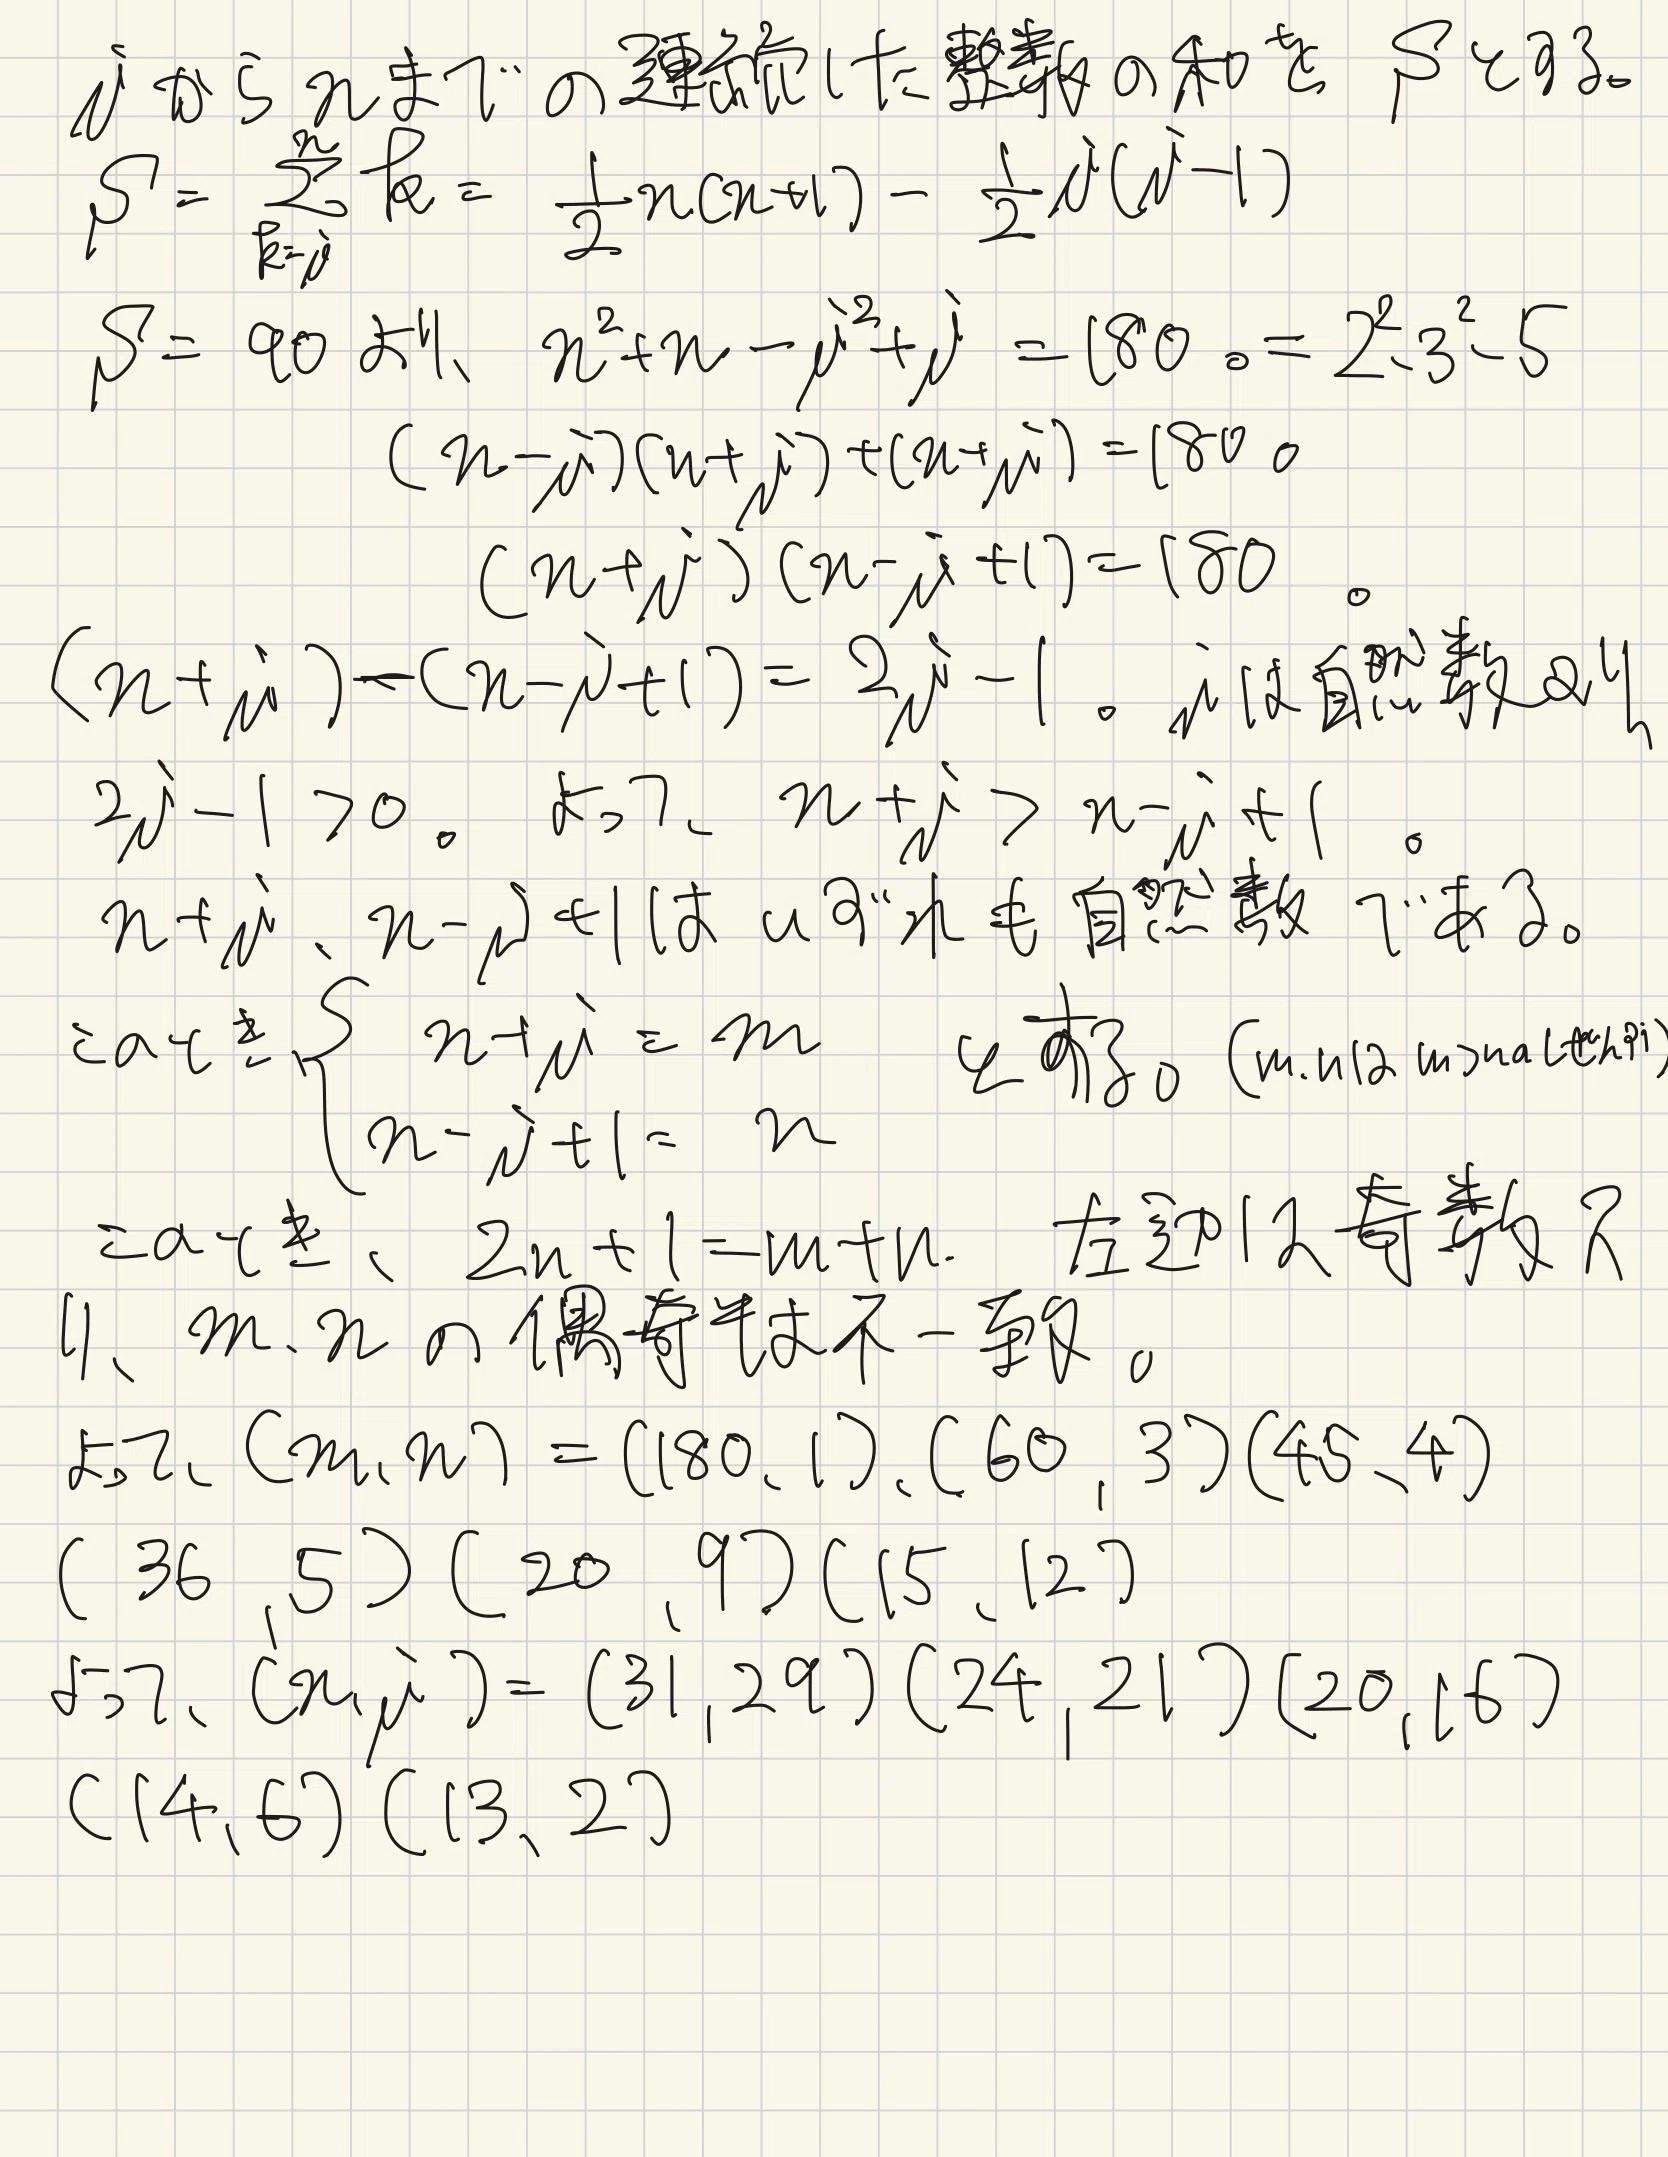 jからnまでの連続した整数の和をSとする。
S = Σ[k=j→n] k = 1/2 n(n+1) − 1/2 j(j−1)
S = 90より、 n²+n−j²+j = 180。= 2²·3²·5
(n−j)(n+j)+(n+j) = 180。
(n+j)(n−j+1) = 180。
(n+j)−(n−j+1) = 2j−1。jは自然数より
2j−1>0。よって、n+j > n−j+1。
n+j、n−j+1はいずれも自然数である。
このとき、{ n+j = m とする。(m.nは m>n
n−j+1 = n
このとき、2n+1=m+n. 左辺は奇数よ
り、m、nの偶奇は不一致。
よって、(m、n) = (180、1)、(60,3)(45、4)
(36,5)(20、9)(15、12)
よって、(n、j) = (31,29)(24,21)(20,16)
(14、6)(13、2)